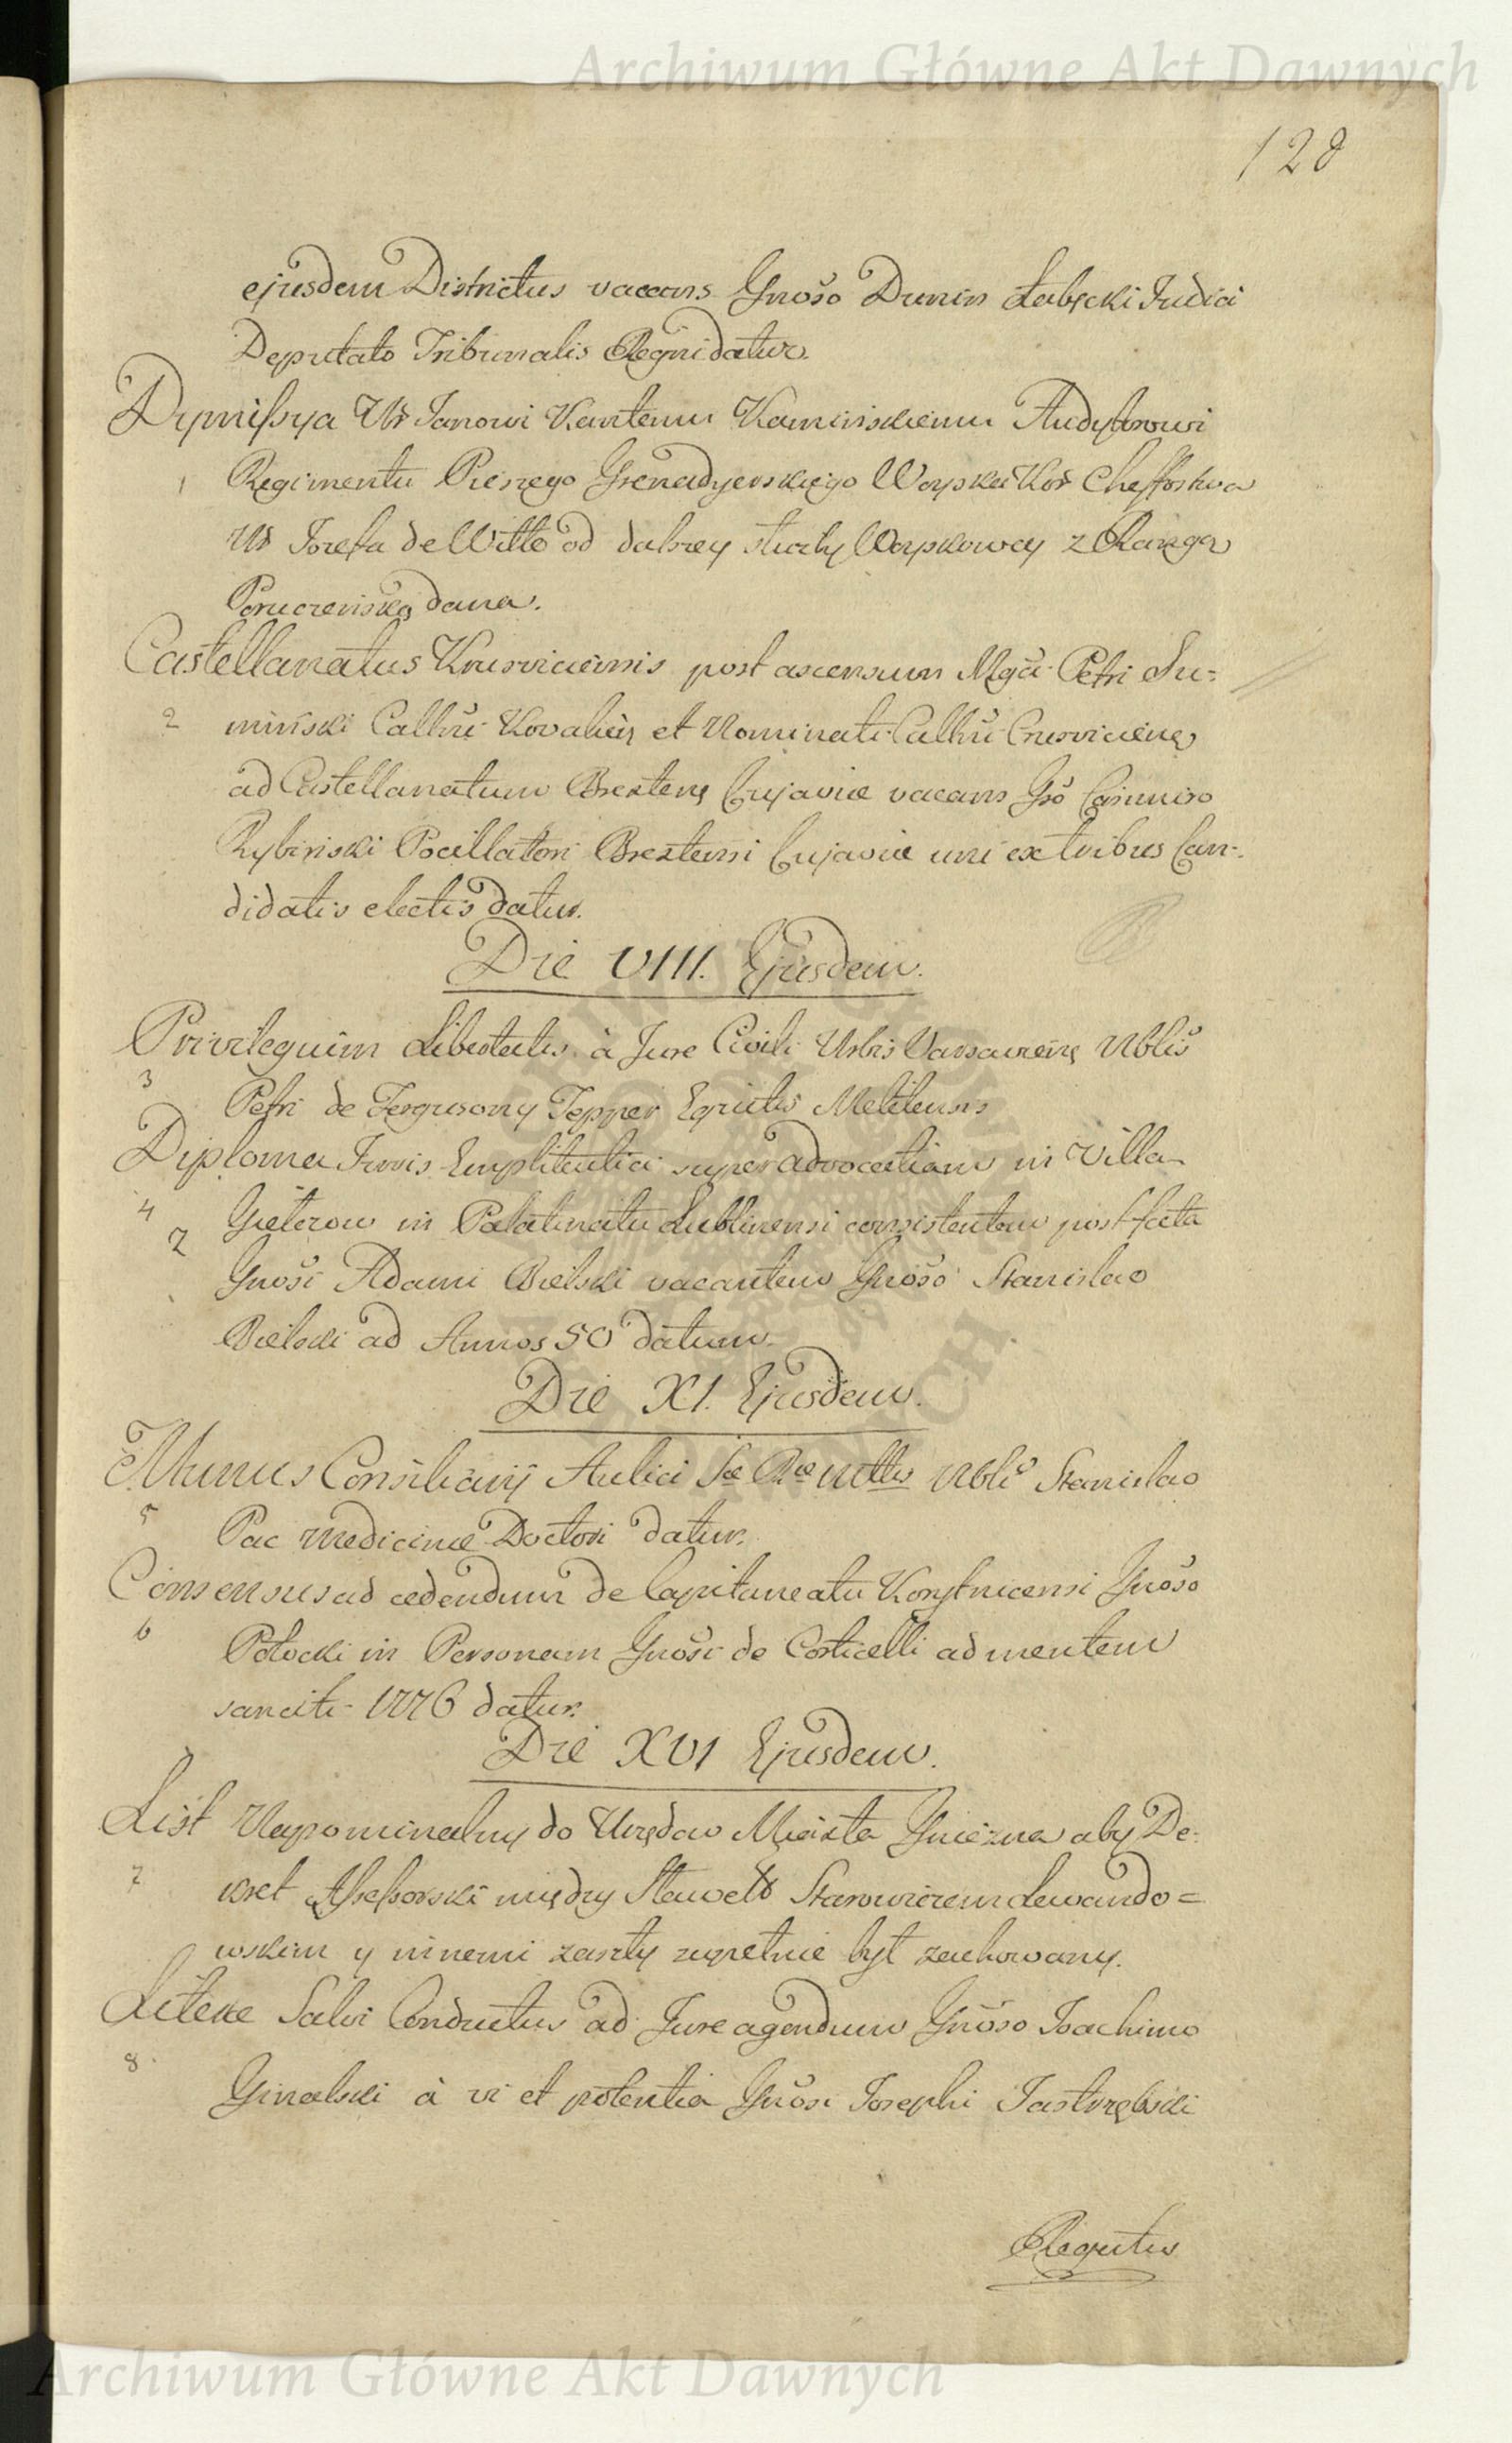 Archiwum Główne Akt Dawnych
128
ejusdem Districtus vacans Gnoso Dunin Łabęcki Judici
Deputato Tribunalis Regni datur.
Dymissya Ur Janowi Kantemu Kaminskiemu Audytorowi
1 Regimentu Pieszego Grenadyerskiego Woyska Kor Cheffostwa
Ur Jozefa de Witte od dalszey służby Woyskowey z Rangą
Poruczeńską dana.
Castellanatus Krusviciensis post ascensum Mgci Petri Su-
2 miński Callni Kovalien et Nominati Callni Crusvicien
ad Castellanatum Bresten Cujaviæ vacans Gso Casimiro
Rybiński Pocillatori Brestensi Cujaviæ uni ex tribus Can-
didatis electis datur.
Die VIII. Ejusdem.
Privilegium Libertatis à Jure Civili Urbis Varsavien Nblis
3 Petri de Fergusony Tepper Equitis Melitensis
Diploma Juris Emphiteutici super advocatiam in Villa
4 Giełczew in Palatinatu Lublinensi consistentem post fata
2
Gnosi Adami Bielski vacantem Gnoso Stanislao
Bielski ad Annos 50 datum.
Die XI. Ejusdem.
Munus Consiliarij Aulici Sæ Ræ Mttis Nbli Stanislao
5 Pac Medicinæ Doctori datur.
Consensus ad cedendum de Capitaneatu Korytnicensi Gnoso
6 Potocki in Personam Gnosi de Corticelli ad mentem
sanciti 1776 datur.
Die XVI Ejusdem.
List Napominalny do Urzędow Miasta Gniezna aby De-
7 kret Assessorski między Sławetn Stanowiczem Lewando=
wskim y innemi zaszły zupełnie był zachowany.
Literæ Salvi Conductus ad Jure agendum Gnoso Joachimo
8 Ginalski à vi et potentia Gnosi Josephi Jastrzębski
Requitus
Archiwum Główne Akt Dawnych